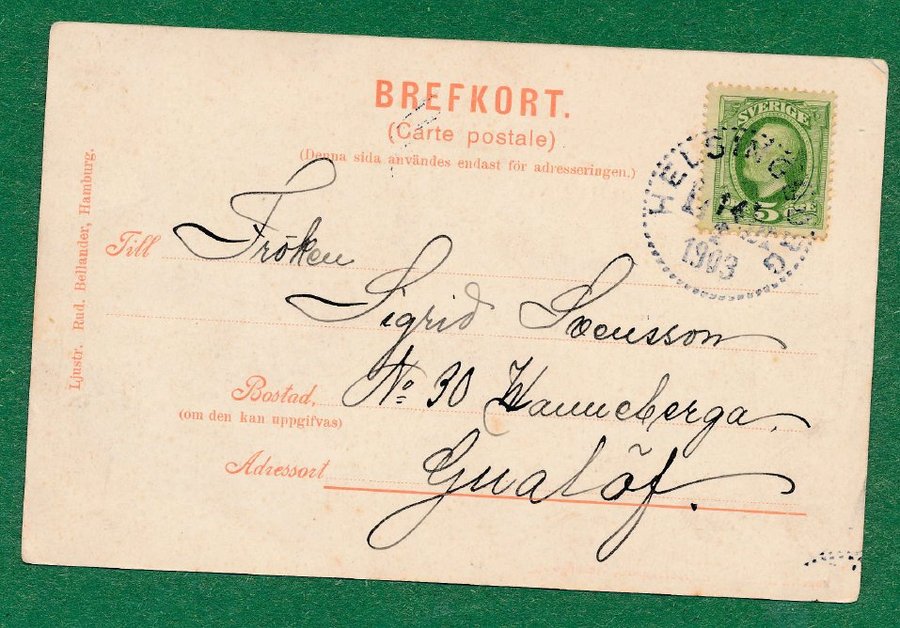 BREFKORT.
(Carte postale)
(Denna sida användes endast för adresseringen.)
SVERIGE
5 ÖRE
HELSINGBORG
1903
Till Fröken
Sigrid Svensson
Bostad, No 30 Wanneberga.
(om den kan uppgifvas)
Adressort Gualöf.
Ljustr. Rud. Bellander, Hamburg.